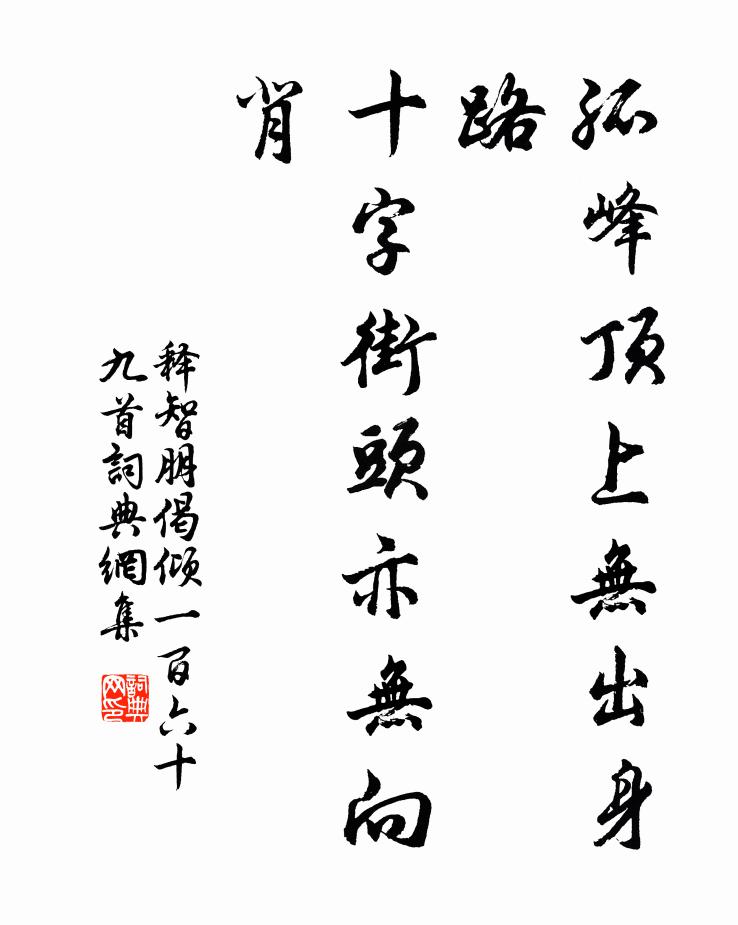 孤峰頂上無出身
路
十字街頭亦無向
背
释智朋偈傾一百六十
九首詞典網集
詞典
网印